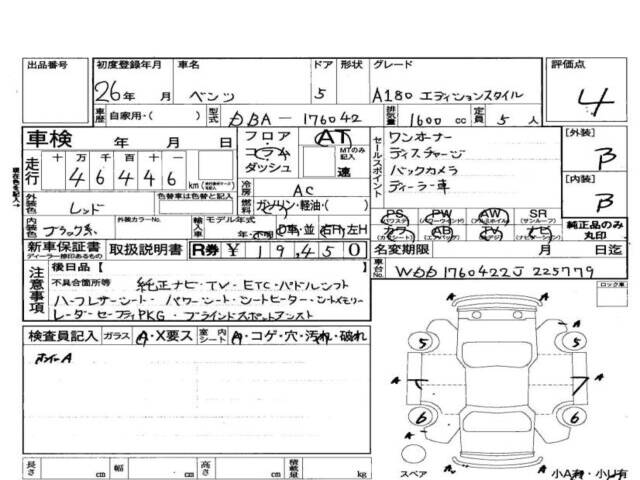 出品番号 初度登録年月 車名 ドア 形状 グレード 評価点
26年 月 ベンツ 5 A180 エディションスタイル 4
車歴 自家用・( ) 型式 DBA-176042 排気量 1600 cc 定員 5 人
車検 年 月 日 フロア・コラム ダッシュ AT MTのみ記入 速
走行 十 万 千 百 十 一 46446 km
冷房 AC
燃料 ガソリン・軽油・( )
セールスポイント
ワンオーナー
ディスチャージ
バックカメラ
ディーラー車
[外装] B
[内装] B
外装色 レッド 色替車は色替と記入
内装色 ブラック系 外装カラーNo. 輸入車 モデル年式 年・ D車・並 右H・左H
PS (パワステ) PW (パワーウインド) AW (アルミホイル) SR (サンルーフ)
カワ (カワシート) AB (エアバッグ) TV (テレビ) ナビ (ナビゲーション)
純正品のみ丸印
新車保証書 ディーラー捺印あるもの 取扱説明書 R券 ¥19,450 名変期限 月 日迄
車台No. WDD1760422J225779
注意事項 後日品 [ ]
不具合箇所等 純正ナビ・TV・ETC・パドルシフト
ハーフレザーシート・パワーシート・シートヒーター・シートメモリー
レーダーセーフティPKG・ブラインドスポットアシスト
ロック車
検査員記入 ガラス A・X要ス 室内 シート A・コゲ・穴・汚れ・破れ
ホイールA
A A
5 5
A A
6 6
A A
スペア 小A有・小U有
長さ cm 幅 cm 高さ cm 積載量 kg
現在の車を記入→